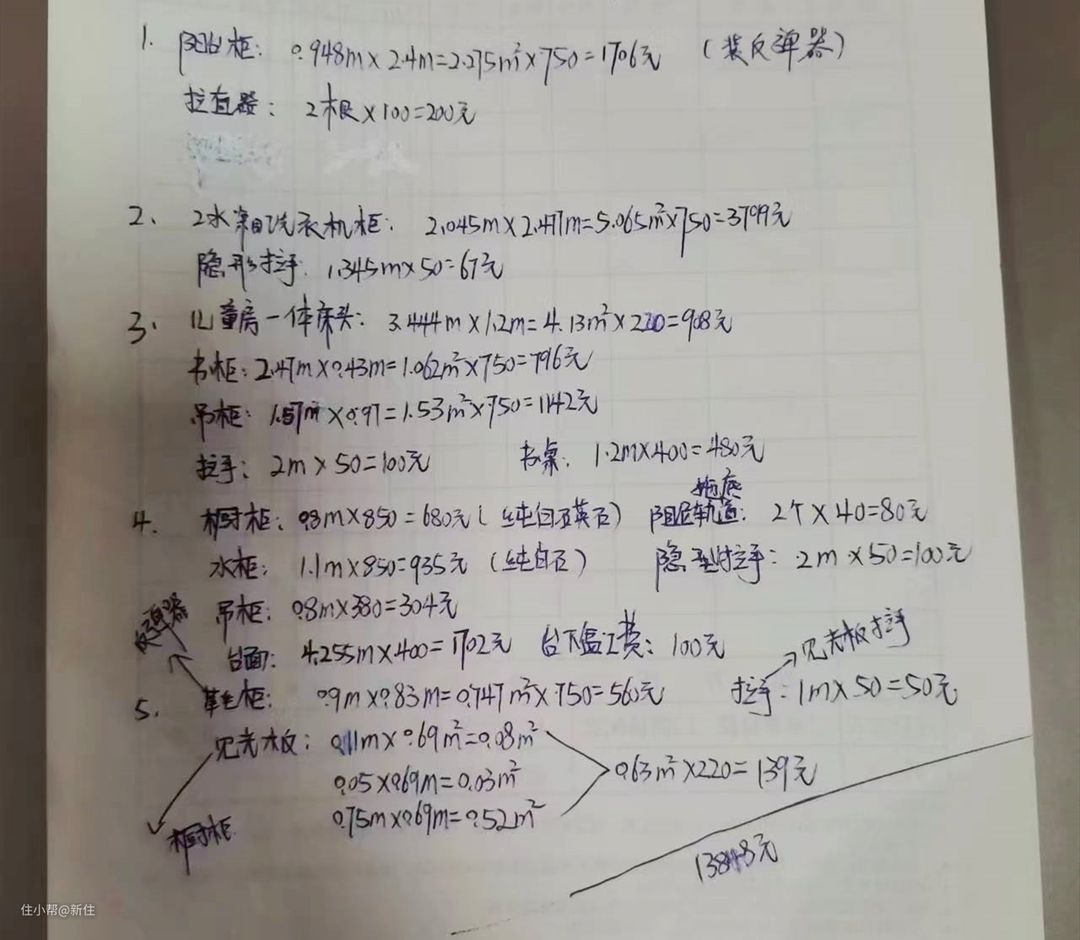 1. 阳台柜: 0.948m×2.4m=2.275m²×750=1706元 (装反弹器)
拉直器: 2根×100=200元
2、 2水箱洗衣机柜: 2.045m×2.477m=5.065m²×750=3799元
隐形拉手: 1.345m×50=67元
3、 儿童房一体床头: 3.444m×1.2m=4.13m²×220=908元
书柜: 2.47m×0.43m=1.062m²×750=796元
吊柜: 1.57m×0.97=1.53m²×750=1142元
拉手: 2m×50=100元 书桌: 1.2m×400=480元
拖底
4、 橱柜: 0.8m×850=680元(纯白石英石) 阻尼轨道: 2个×40=80元
水柜: 1.1m×850=935元 (纯白石) 隐型拉手: 2m×50=100元
吊柜: 0.8m×380=304元
反弹器
台面: 4.255m×400=1702元 台下盆工费: 100元
见光板拉手
5、 鞋柜: 0.9m×0.83m=0.747m²×750=560元 拉手: 1m×50=50元
见光板: 0.11m×0.69m²=0.08m²
0.05×0.69m=0.03m² 0.63m²×220=139元
0.75m×0.69m=0.52m²
橱柜
13848元
住小帮@新住